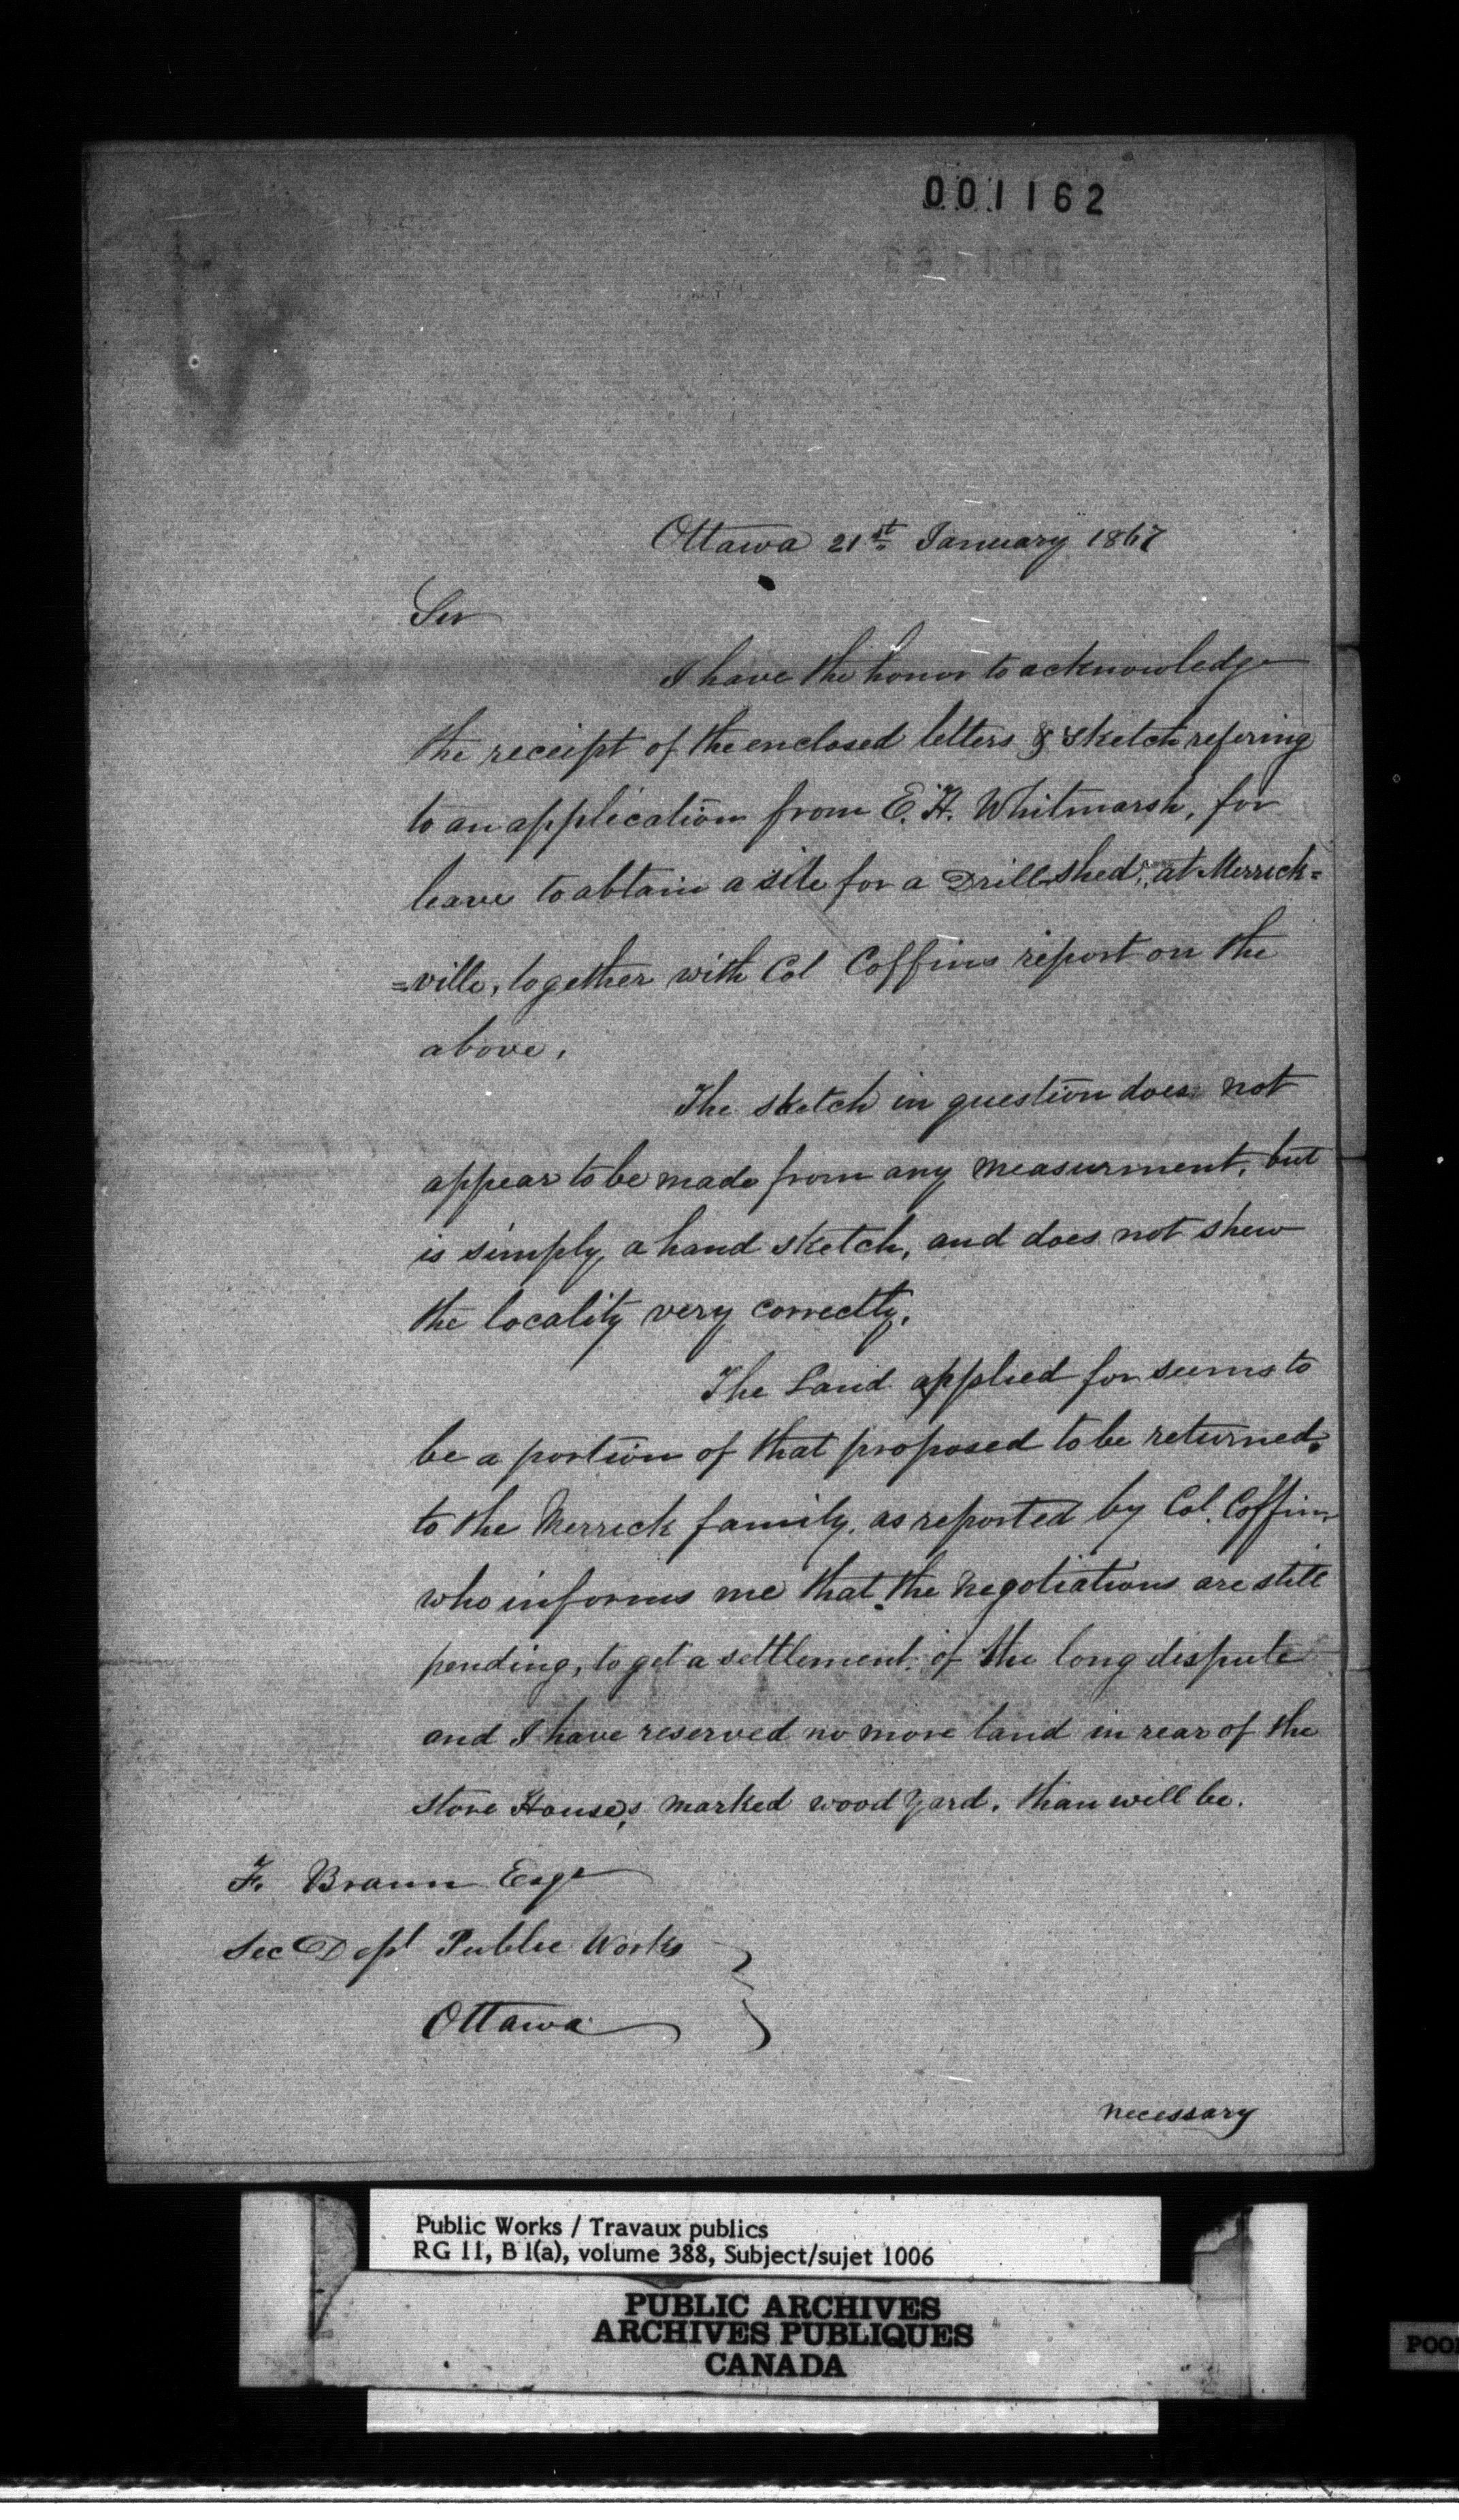 001162
Ottawa 21st January 1867
Sir
I have the honor to acknowledge
the receipt of the enclosed letters & sketch refering
to an application from E. H. Whitmarsh, for
leave to obtain a site for a Drill shed, at Merrick=
=ville, together with Col Coffins report on the
above.
The sketch in question does not
appear to be made from any measurment, but
is simply, a hand sketch, and does not shew
the locality very correctly.
The Land applied for seems to
be a portion of that proposed to be returned
to the Merrick family, as reported by Col. Coffin,
who informs me that the negotiations are still
pending, to get a settlement of the long dispute
and I have reserved no more land in rear of the
Stone House, marked wood yard, than will be.
F. Braun Esqr
Sec Dept Public Works
Ottawa
necessary
Public Works / Travaux publics
RG 11, B 1(a), volume 388, Subject/sujet 1006
PUBLIC ARCHIVES
ARCHIVES PUBLIQUES
CANADA